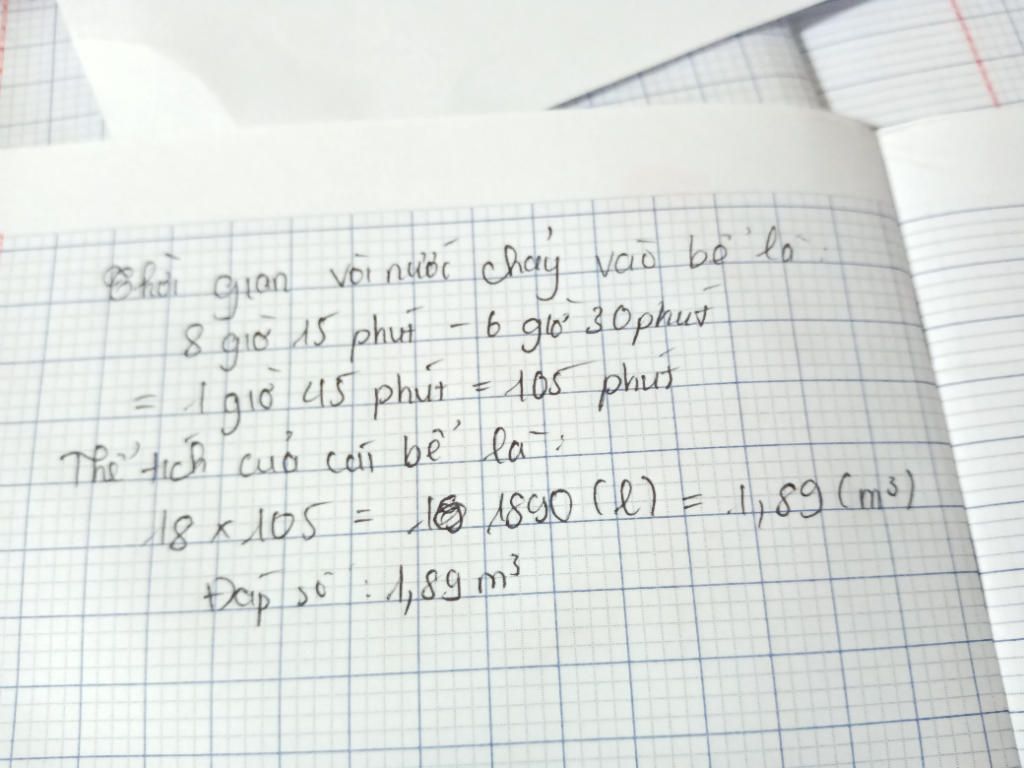 Thời gian vòi nước chảy vào bể là:
8 giờ 15 phút - 6 giờ 30 phút
= 1 giờ 45 phút = 105 phút
Thể tích của cái bể là:
18 x 105 = 1890 (l) = 1,89 (m³)
Đáp số : 1,89 m³